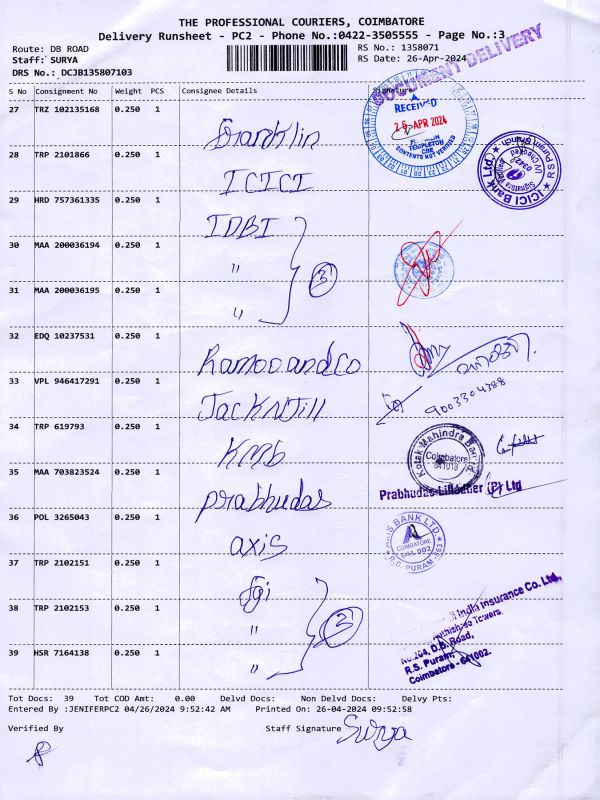 THE PROFESSIONAL COURIERS, COIMBATORE
Delivery Runsheet - PC2 - Phone No.:0422-3505555 - Page No.:3
Route: DB ROAD
RS No.: 1358071
Staff: SURYA
RS Date: 26-Apr-2024
DRS No.: DCJB135807103
DOCUMENT DELIVERY
S No Consignment No Weight PCS Consignee Details Signature
27 TRZ 102135168 0.250 1 Franklin
RECEIVED
26 APR 2024
TEMPLETON
CBE
CONTENTS NOT VERIFIED
28 TRP 2101866 0.250 1 ICICI
ICICI Bank
R S Puram Branch
29 HRD 757361335 0.250 1 IDBI
30 MAA 200036194 0.250 1 "
3
31 MAA 200036195 0.250 1 "
32 EDQ 10237531 0.250 1 Ramoo and Co
33 VPL 946417291 0.250 1 Jack N Jill
9003304788
34 TRP 619793 0.250 1 KMb
Kotak Mahindra Bank
Coimbatore
641018
35 MAA 703823524 0.250 1 Prabhudas
Prabhudas Lilladher (P) Ltd
36 POL 3265043 0.250 1 axis
AXIS BANK LTD
COIMBATORE
641 002
R.S. PURAM
37 TRP 2102151 0.250 1 fgi
38 TRP 2102153 0.250 1 "
2
39 HSR 7164138 0.250 1 "
India Insurance Co. Ltd.,
Towers,
No.264, D.B. Road,
R.S. Puram,
Coimbatore - 641002.
Tot Docs: 39 Tot COD Amt: 0.00 Delvd Docs: Non Delvd Docs: Delvy Pts:
Entered By :JENIFERPC2 04/26/2024 9:52:42 AM Printed On: 26-04-2024 09:52:58
Verified By Staff Signature Surya